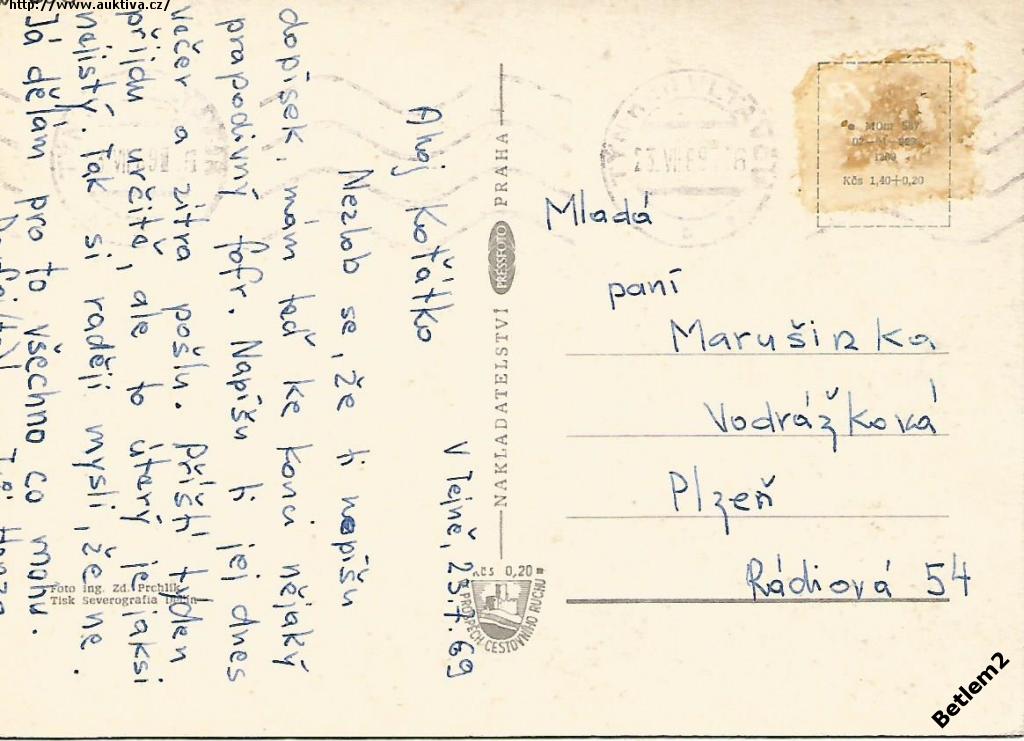 http://www.auktiva.cz/
V Tejně, 23.7.69
Ahoj Koťátko
Nezlob se, že ti nepíšu
dopísek, mám teď ke konci nějaký
prapodivný fofr. Napíšu ti jej dnes
večer a zítra pošlu. příští týden
přijdu určitě, ale to úterý je jaksi
nejistý. Tak si raději mysli, že ne.
Já dělám pro to všechno co mohu.
Tvůj Honza
Foto ing. Zd. Prchlík
Tisk Severografia Děčín
NAKLADATELSTVÍ PRESSFOTO PRAHA
Kčs 0,20
VE PROSPĚCH CESTOVNÍHO RUCHU
Kčs 1,40+0,20
Mladá
paní
Marušinka
Vodrážková
Plzeň
Rádiová 54
Betlem2